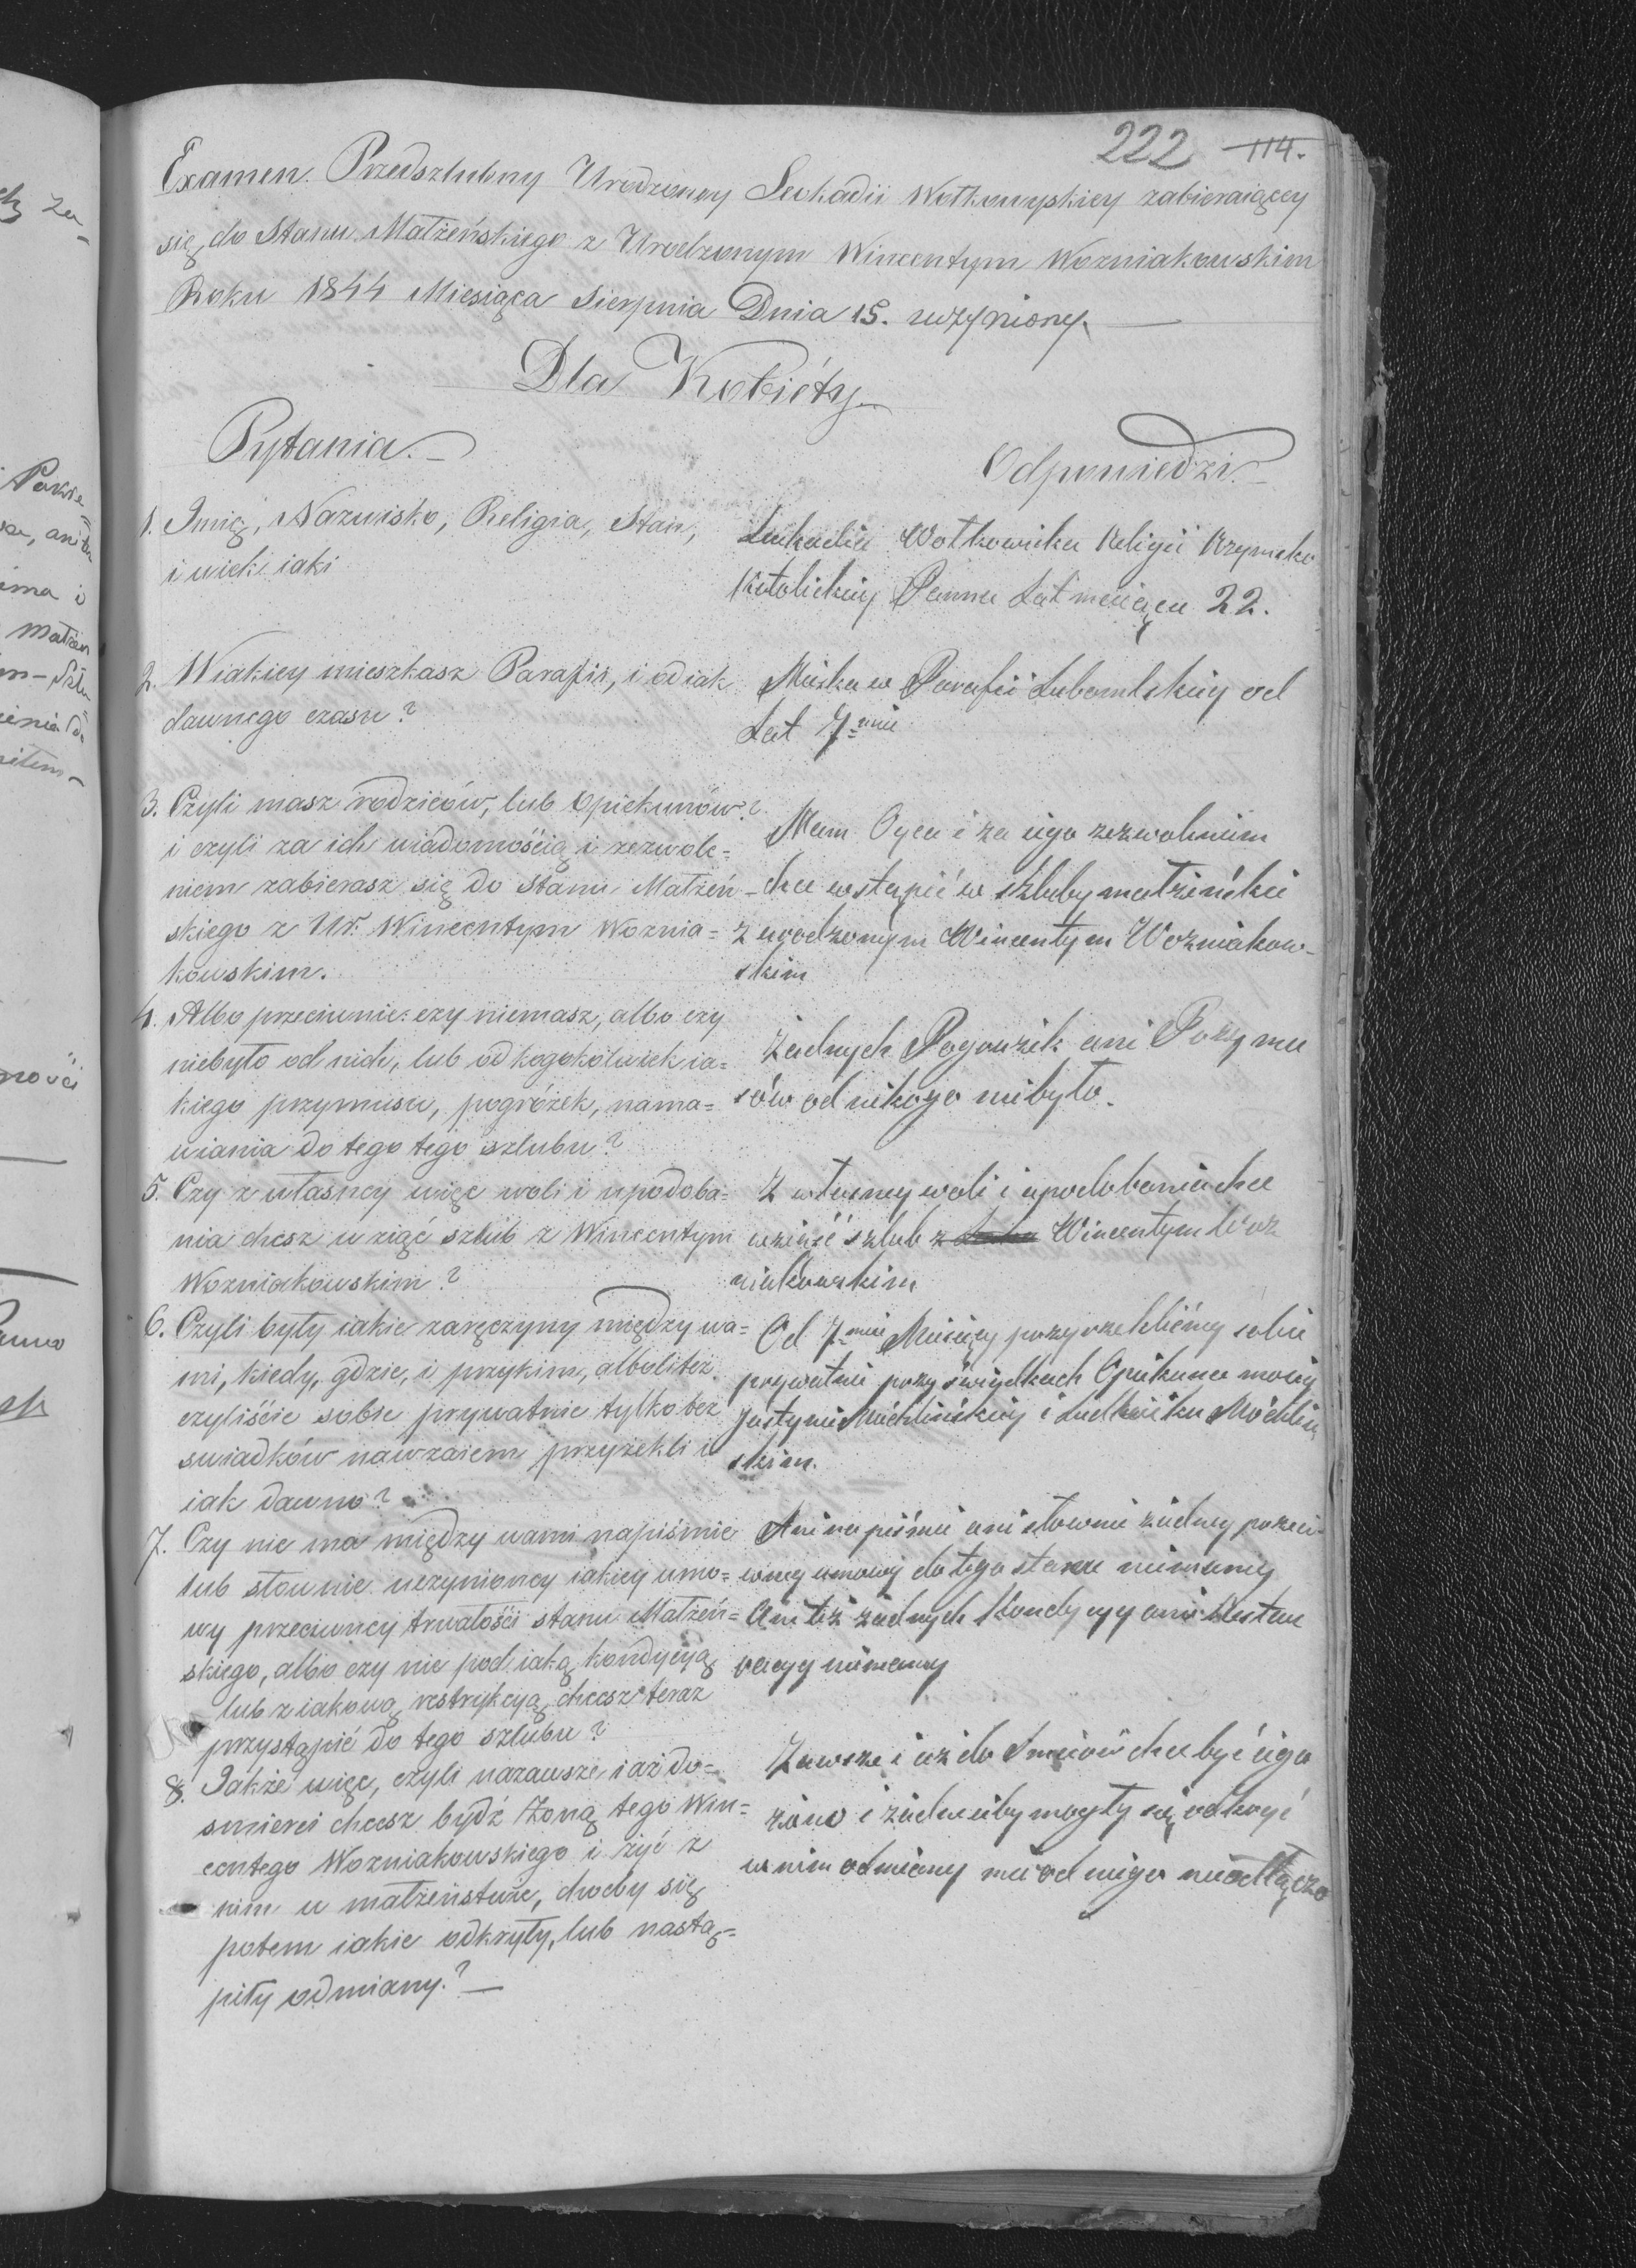 222 114.
Examen Przedszlubny Urodzoney Leokadii Wołkowyskiey zabieraiącey
się do Stanu Małżeńskiego z Urodzonym Wincentym Wozniakowskim
Roku 1844 Miesiąca Sierpnia Dnia 15. uczyniony.
Dla Kobiéty
Pytania.
Odpowiedzi.
1. Imię, Nazwisko, Religia, Stan,
i wiek iaki
Leokadia Wołkowicka Religii Rzymsko
Katolickiey Panna Lat maiąca 22.
2. W iakiey mieszkasz Parafii, i od iak
dawnego czasu?
Miszkam w Parafii Lubomlskiey od
Lat 7miu
3. Czyli masz rodziców, lub opiekunów?
i czyli za ich wiadomością i zezwole=
niem zabierasz się do Stanu Małżeń
skiego z Ur. Wincentym Woznia=
kowskim.
Mam Oyca i za iego zezwoleniem
chce wstąpić w szluby małżeńskie
z urodzonym Wincentym Wozniakow-
skim
4. Albo przeciwnie: czy niemasz, albo czy
niebyło od nich, lub od kogokolwiek ia=
kiego przymusu, pogróżek, nama=
wiania do tego tego szlubu?
Żadnych Pogrużek ani Przymu
sów od nikogo niebyło.
5. Czy z własney więc woli i upodoba=
nia chcesz wziąć szlub z Wincentym
Wozniakowskim?
Z własney woli i upodobania chce
wziąść szlub z Wincentym Woz
niakowskim
6. Czyli były iakie zaręczyny między wa=
mi, kiedy, gdzie, i przykim, alboliteż
czyliście sobie prywatnie tylko bez
swiadków nawzaiem przyżekli i
iak dawno?
Od 7miu Miesięcy przyrzekliśmy sobie
prywatnie przy świadkach Opiekunce moiey
Justynie Móchlińskiey i Ludwiku Móchliń
skim.
7. Czy nie ma między wami napiśmie
lub słownie uczynioney iakiey umo=
wy przeciwney trwałości stanu Małżeń=
skiego, albo czy nie pod iaką kondycyą,
lub z iakową restrykcyą, chcesz teraz
przystąpić do tego szlubu?
Ani na piśmie ani słownie żadney przeci-
wney umowy do tego stanu niemamy
Ani też żadnych Kondycyy ani
niemamy
8. Jakże więc, czyli nazawsze i aż do=
smierci chcesz bydź Żoną tego Win=
centego Wozniakowskiego i żyć z
nim w małżeństwie, choćby się
potem iakie odkryły, lub nastą=
piły odmiany?
Zawsze i aż do Śmierci chce być iego
żono i żadne by mogły się odkryć
w nim odmiany mie od niego nieodłączo